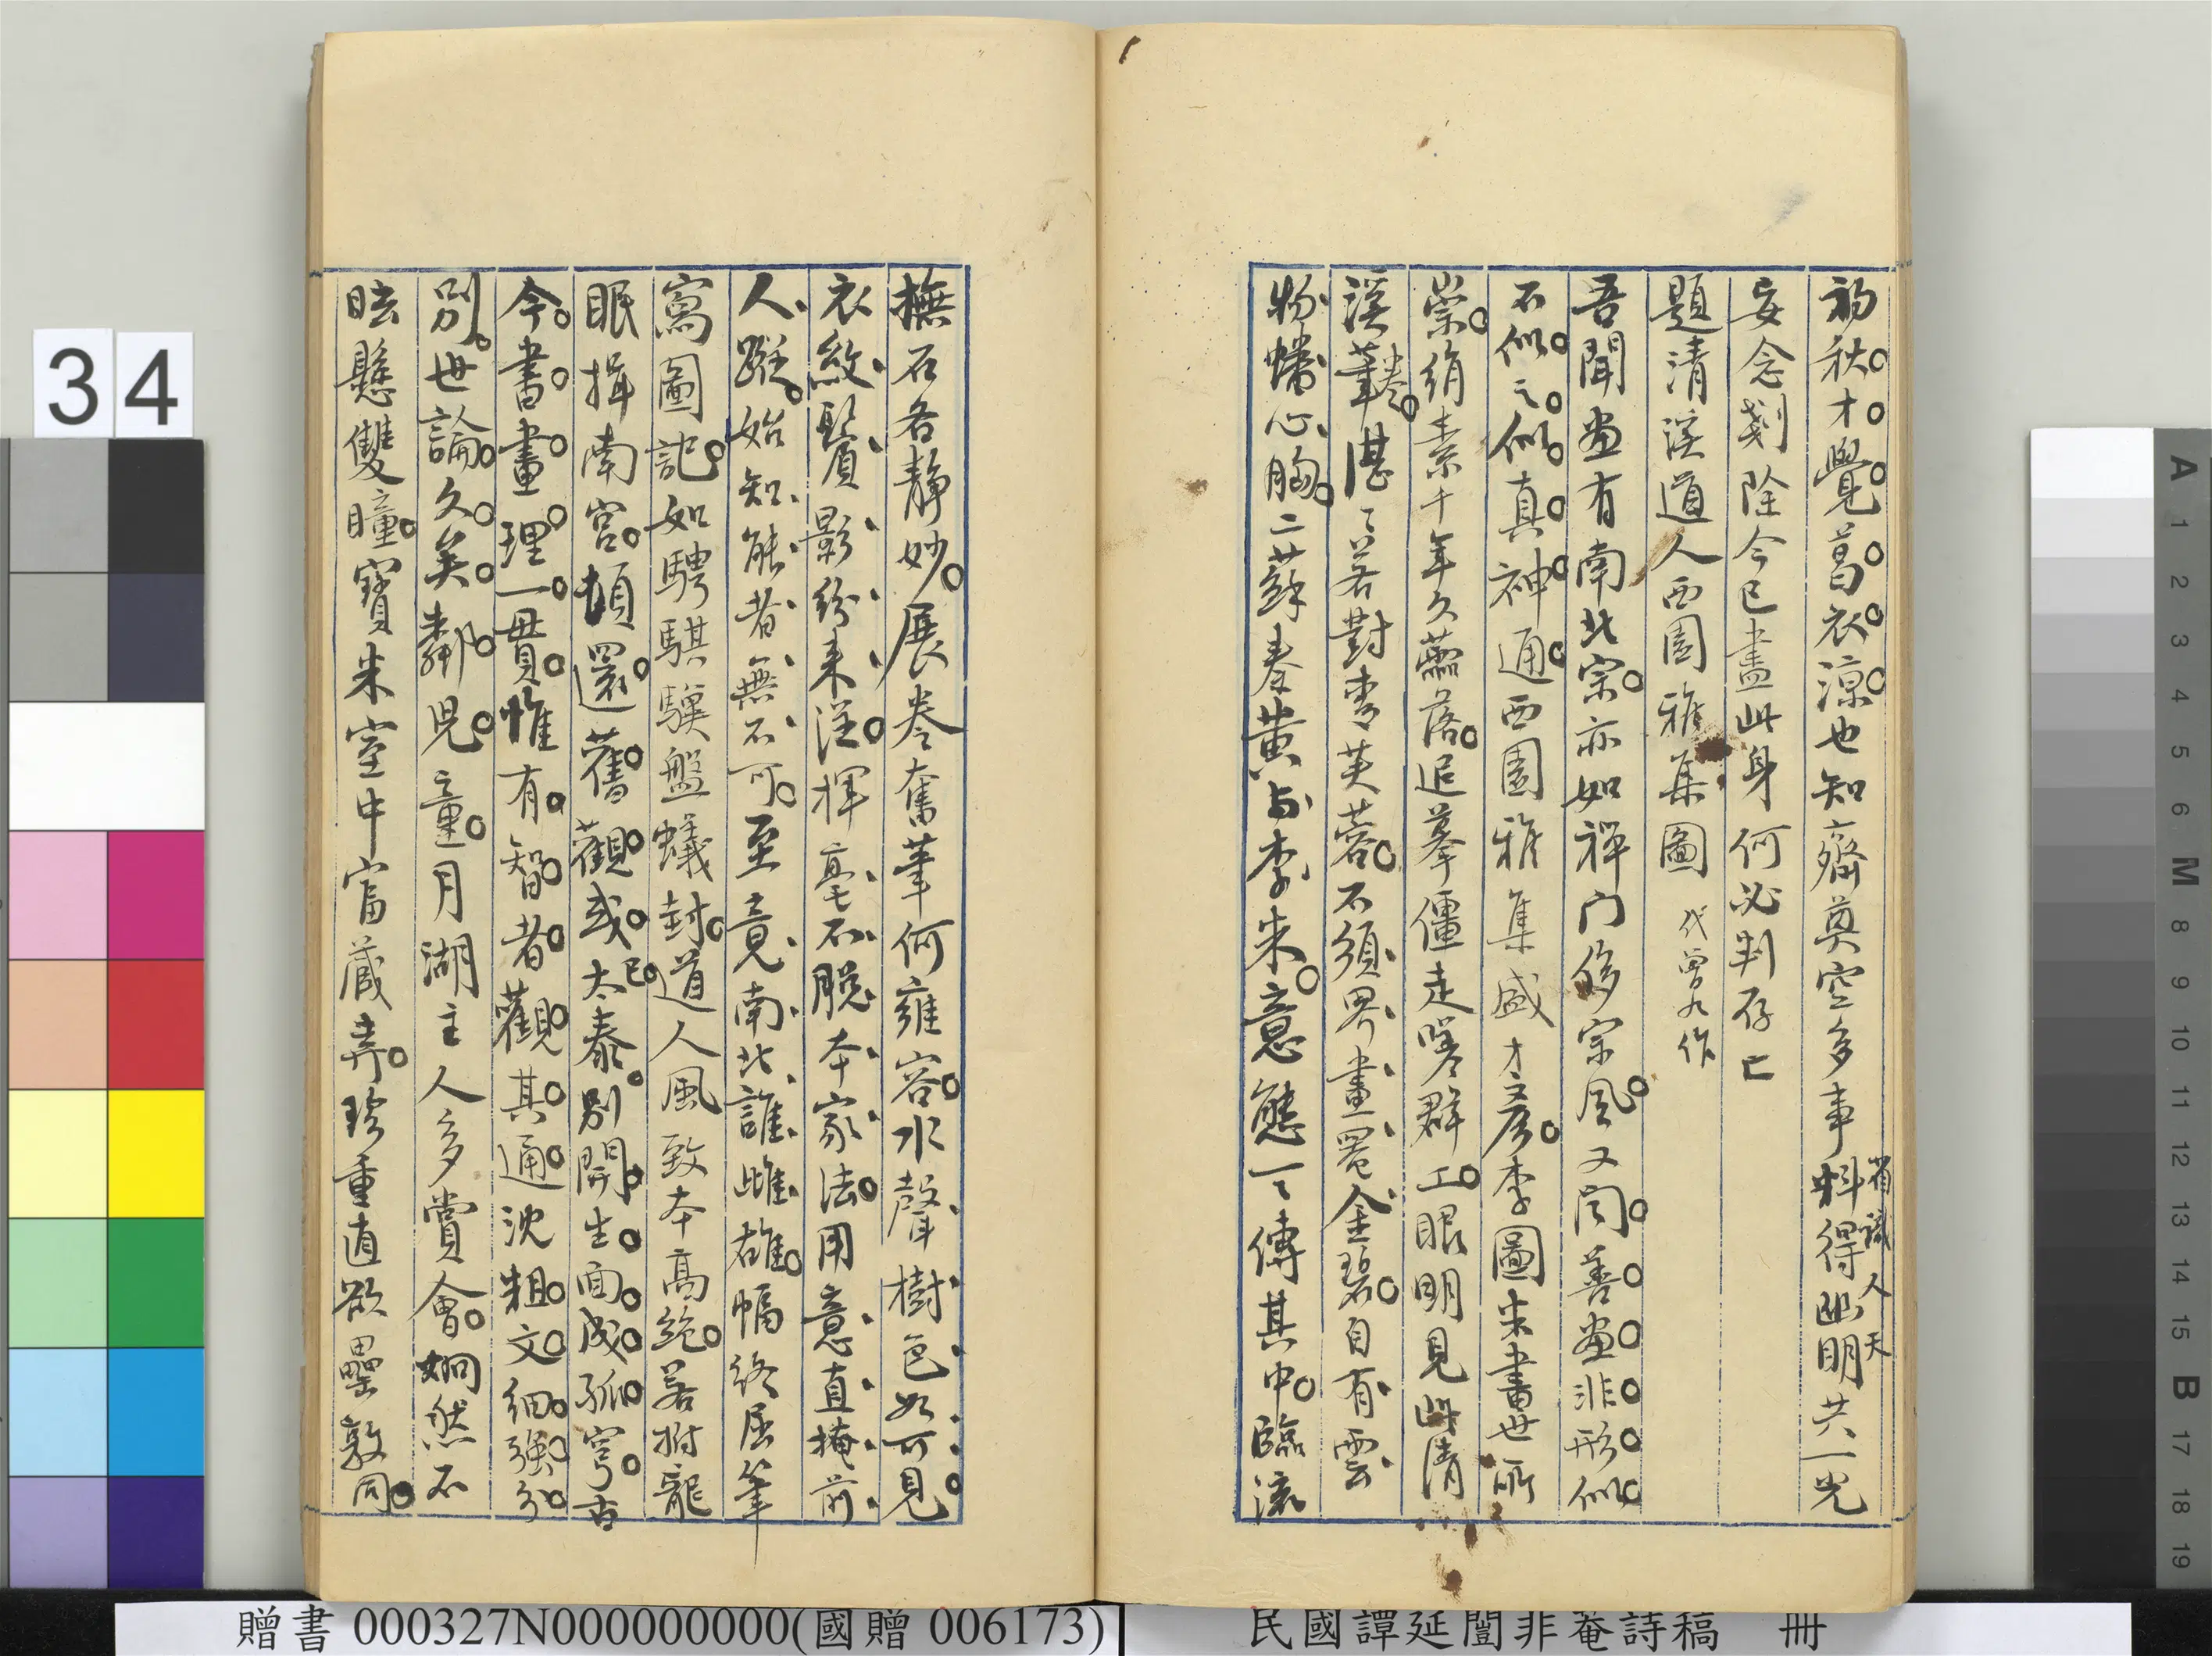 初秋才覺葛衣涼也知齋奠空多事料得幽明共一光
省識人天
妄念剗除今已盡此身何必判存亡
題清溪道人西園雅集圖 代曾九作
吾聞畫有南北宗亦如禪門侈宗風又聞善畫非形似
不似之似真神通西園雅集盛才彥李圖米書世所
崇絹素千年久蘦落追摹僵走嗟群工眼明見此清
溪筆湛〻若對青芙蓉不須界畫罨金碧自有雲
卷
物蟠心胸二蘇秦黃与李米意態一〻傳其中臨流
撫石各靜妙展卷奮筆何雍容水聲樹色如可見
衣紋鬢影紛來從揮毫不脫本家法用意直掩前
人蹤始知能者無不可至竟南北誰雌雄幅終屈筆
寫圖記如騁騏驥盤蟻封道人風致本高絕若拊龍
眠揖南宮頓還舊觀或太泰別開生面成孤穹古
已
今書畫理一貫惟有智者觀其通沈粗文細強分
別世論久矣鄰兒童月湖主人多賞會炯然不
眩懸雙瞳寶米室中富藏弆珍重直欲罍敦同
34
贈書 000327N000000000(國贈 006173)
民國譚延闓非菴詩稿 冊
A 1 2 3 4 5 6 M 8 9 10 11 12 13 14 15 B 17 18 19